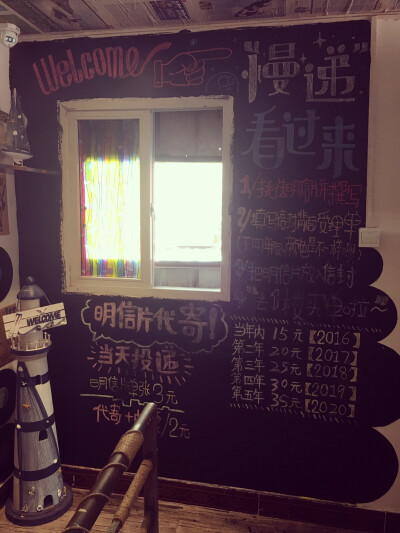 Welcome
慢递
看过来
1/挑选明信片撰写
2/填
3/把明信片放入信封
明信片代寄!
当天投递
明信片每张3元
代寄
/2元
当年内 15元【2016】
第二年 20元【2017】
第三年 25元【2018】
第四年 30元【2019】
第五年 35元【2020】
WELCOME